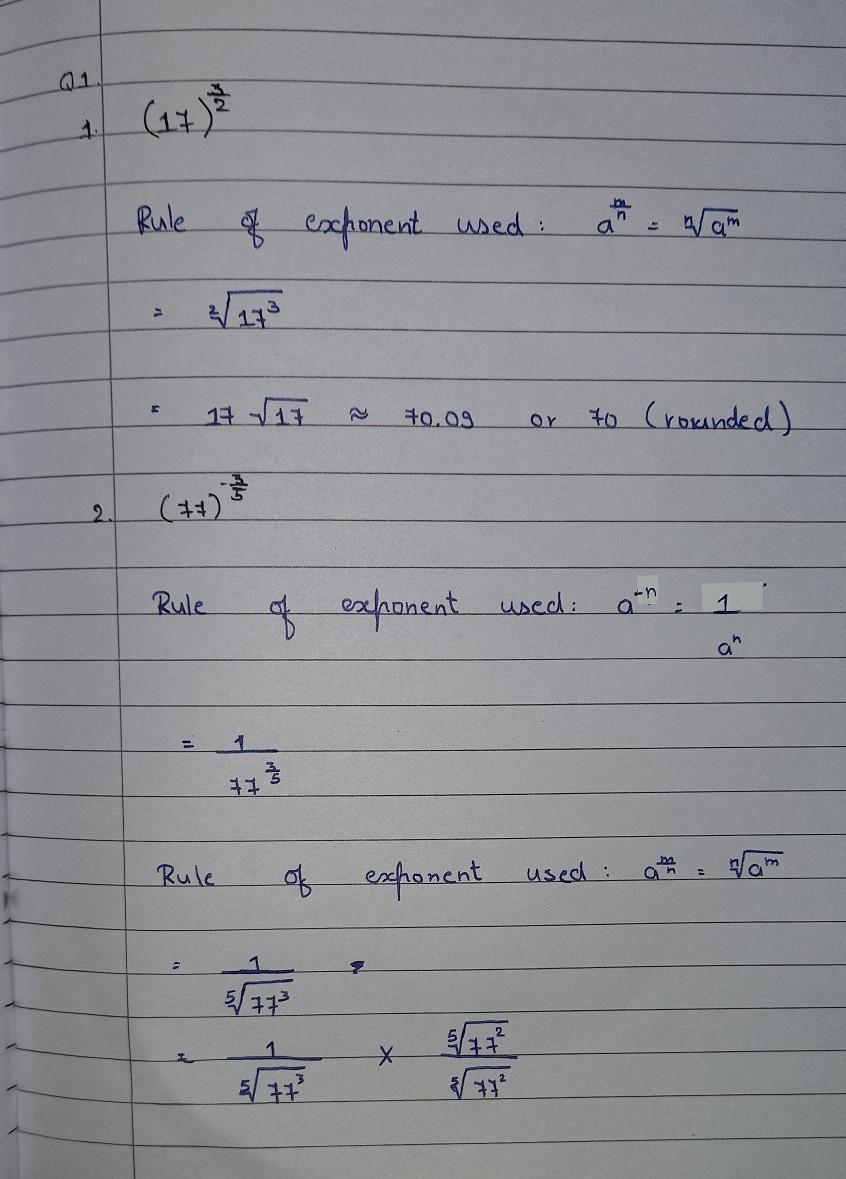 Q1.
1. (17)^(3/2)
Rule of exponent used: a^(m/n) = ⁿ√(a^m)
= ²√(17³)
= 17 √17 ≈ 70.09 or 70 (rounded)
2. (77)^(-3/5)
Rule of exponent used: a^(-n) = 1/a^n
= 1/77^(3/5)
Rule of exponent used: a^(m/n) = ⁿ√(a^m)
= 1/⁵√(77³)
= 1/⁵√(77³) × ⁵√(77²)/⁵√(77²)